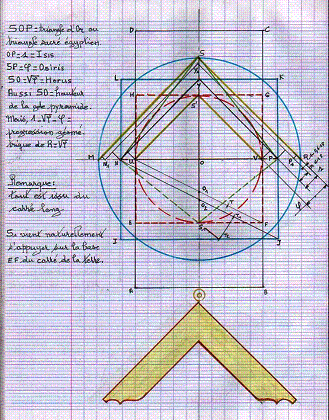 SOP = triangle d'Or ou
triangle sacré égyptien.
OP = 1 = Isis
SP = φ = Osiris
SO = √φ = Horus
Aussi SO = hauteur
de la gde pyramide.
Mais, 1 = √φ = φ =
progression géomé-
trique de R = √φ
Remarque:
tout est issu du
carré long.
Se vient naturellement
s'appuyer sur la base
EF du carré de la terre.
D
C
S
L
K
H
G
M
N
U
O
V
P
R
E
F
I
J
T
A
B